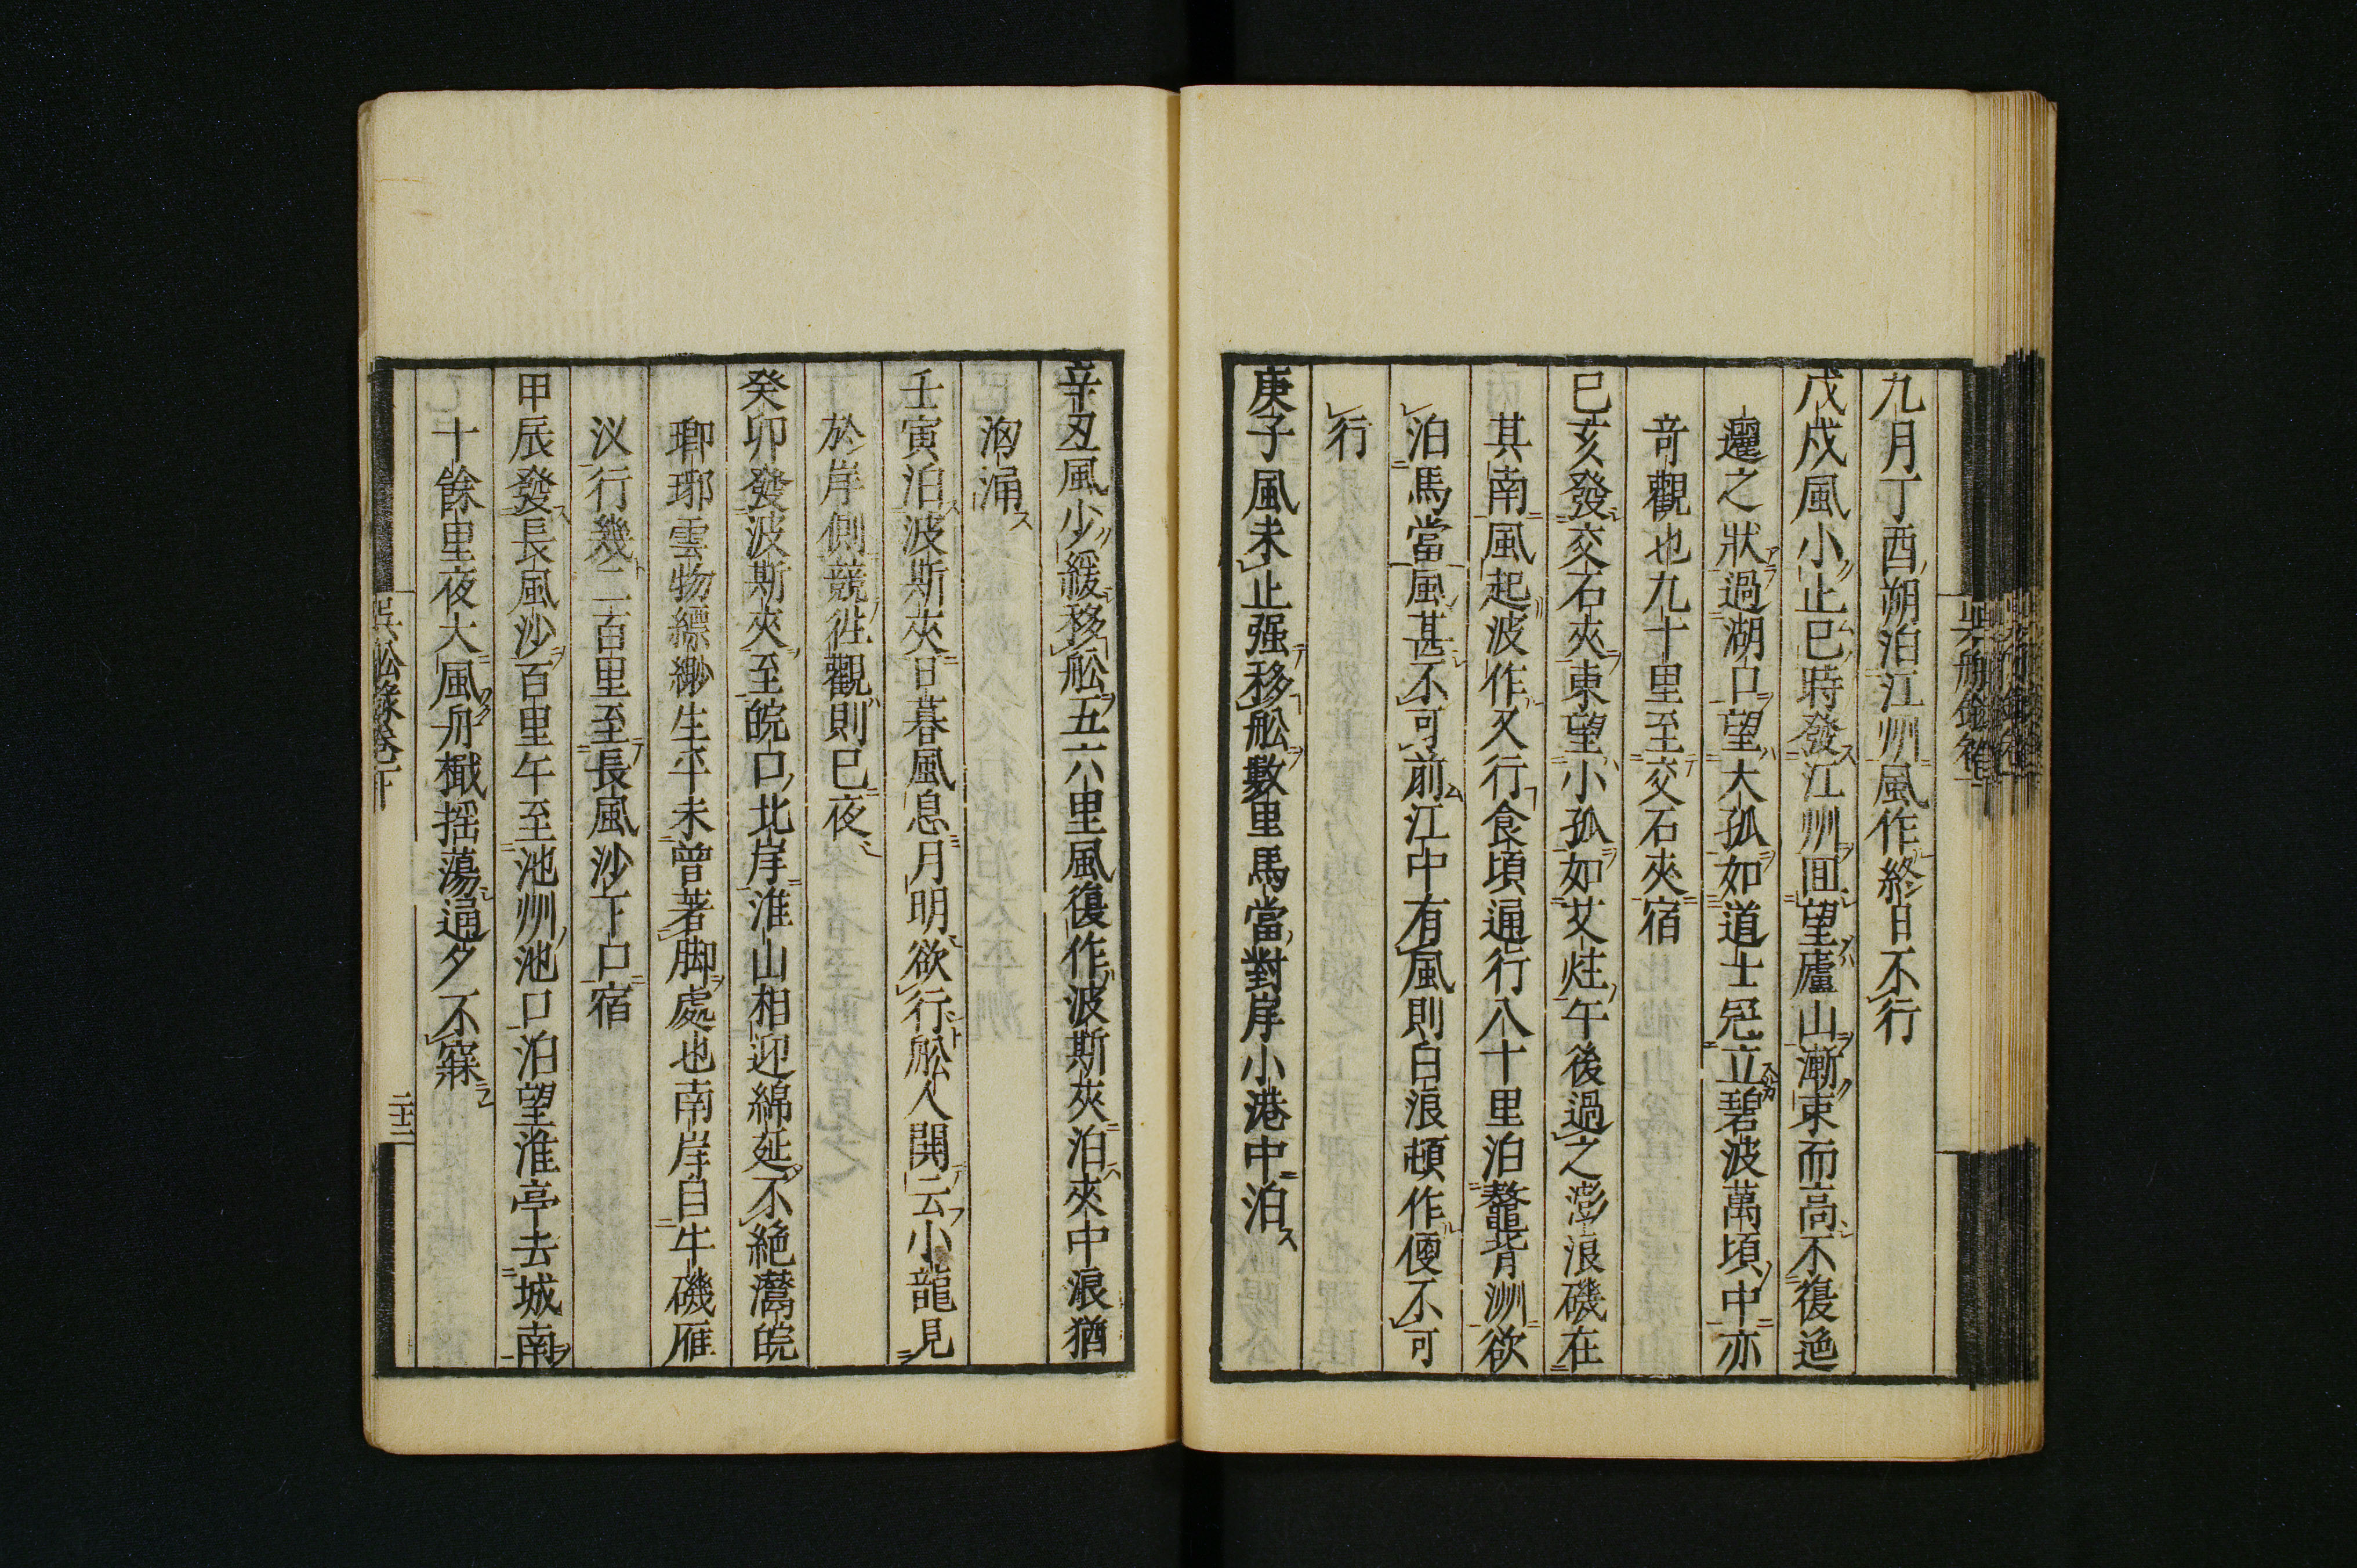 九月丁酉朔泊江州風作終日不行
戊戌風小止巳時發江州回望廬山漸束而高不復迤
邐之狀過湖口望大孤如道士冠立碧波萬頃中亦
竒觀也九十里至交石夾宿
巳亥發交石夾東望小孤如艾炷午後過之澎浪磯在
其南風起波作久行食頃通行八十里泊鼇背洲欲
泊馬當風甚不可前江中有風則白浪頓作便不可
行
庚子風未止强移舩數里馬當對岸小港中泊
辛丑風少緩移舩五六里風復作波斯夾泊夾中浪猶
洶涌
壬寅泊波斯夾日暮風息月明欲行舩人閧云小龍見
於岸側競徃觀則已夜
癸卯發波斯夾至皖口北岸淮山相迎綿延不絶灊皖
瑯琊雲物縹緲生平未曾著脚處也南岸自牛磯雁
汊行幾二百里至長風沙下口宿
甲辰發長風沙百里午至池州池口泊望淮亭去城南
十餘里夜大風舟檝揺蕩通夕不寐
吳舩錄卷下
二十二